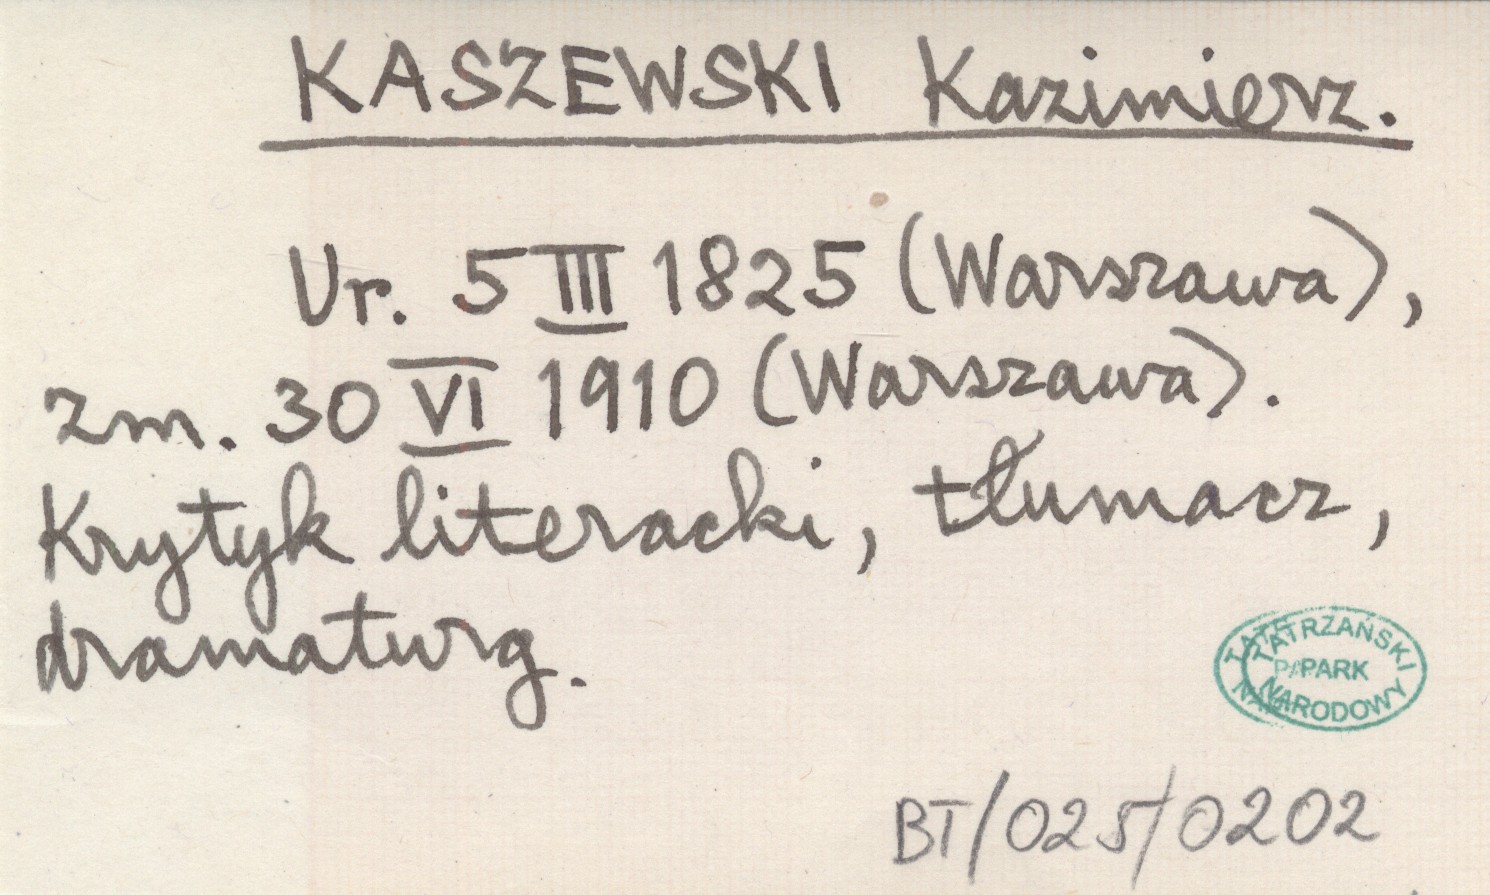 KASZEWSKI Kazimierz.
Ur. 5 III 1825 (Warszawa),
zm. 30 VI 1910 (Warszawa).
Krytyk literacki, tłumacz,
dramaturg.
TATRZAŃSKI
PARK
NARODOWY
BT/025/0202